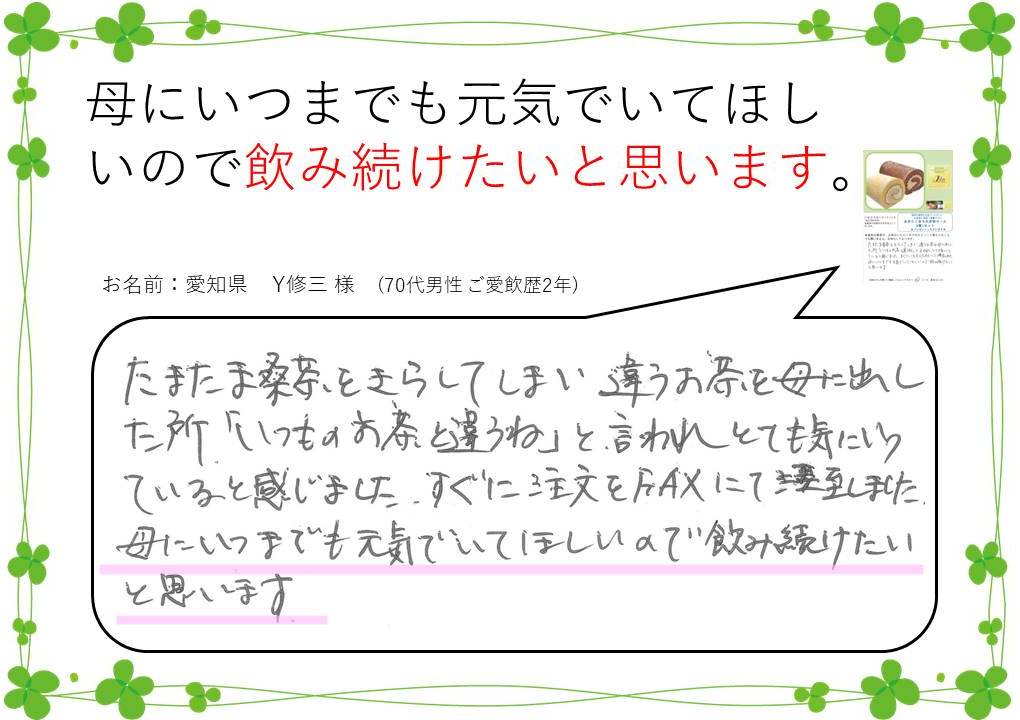 母にいつまでも元気でいてほし
いので飲み続けたいと思います。
お名前：愛知県　Y修三 様　(70代男性 ご愛飲歴2年)
たまたま桑茶をきらしてしまい 違うお茶を母に出し
た所「いつものお茶と違うね」と言われとても気にいっ
ていると感じました.すぐに注文をFAXにてしました.
母にいつまでも元気でいてほしいので飲み続けたい
と思います.